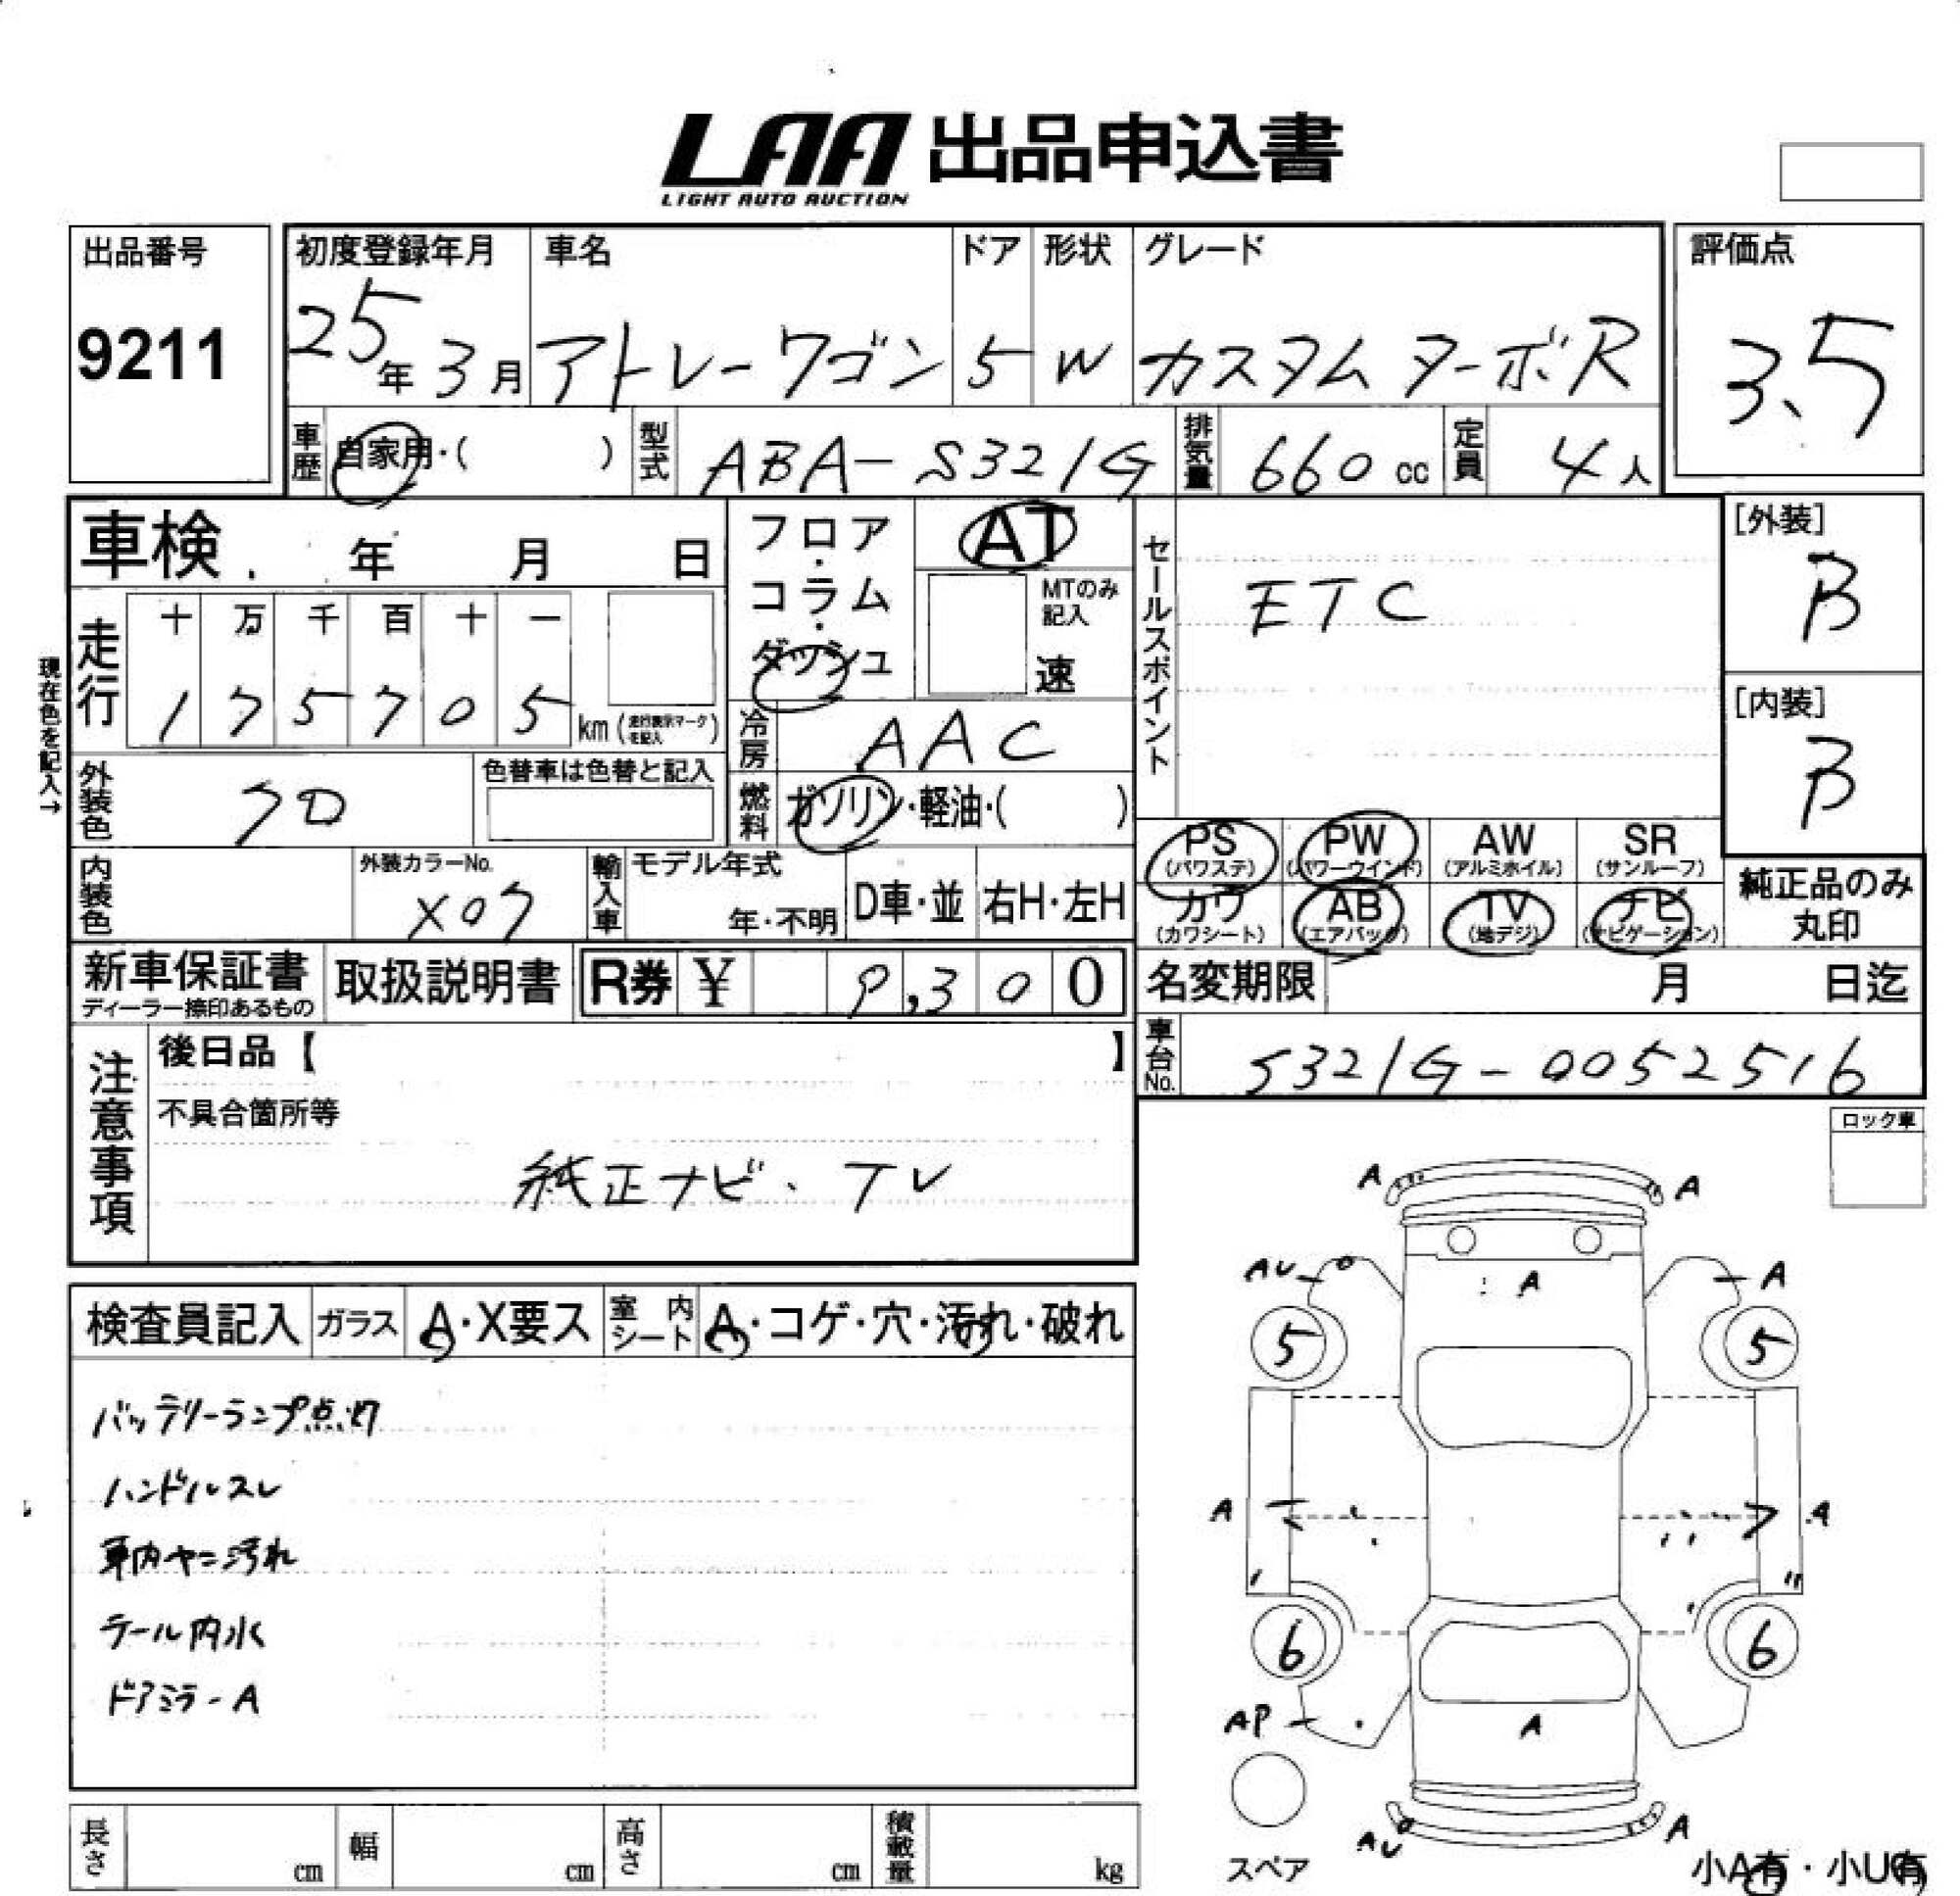 LAA 出品申込書
LIGHT AUTO AUCTION
出品番号
9211
初度登録年月
25年3月
車名
アトレーワゴン
ドア
5
形状
W
グレード
カスタムターボR
評価点
3.5
車歴 自家用・( )
型式 ABA-S321G
排気量 660 cc
定員 4人
車検 年 月 日
フロア・コラム・ダッシュ
AT
MTのみ記入
速
セールスポイント
ETC
[外装]
B
[内装]
B
現在色を記入→
走行
十 万 千 百 十 一
1 7 5 7 0 5 km (走行表示マークを記入)
冷房 AAC
外装色 クロ
色替車は色替と記入
燃料 ガソリン・軽油・( )
PS (パワステ)
PW (パワーウインド)
AW (アルミホイル)
SR (サンルーフ)
内装色
外装カラーNo.
X07
輸入車
モデル年式
年・不明
D車・並
右H・左H
カワ (カワシート)
AB (エアバック)
TV (地デジ)
ナビ (ナビゲーション)
純正品のみ丸印
新車保証書
ディーラー捺印あるもの
取扱説明書
R券 ¥ 9,300
名変期限 月 日迄
車台No. S321G-0052516
注意事項
後日品【 】
不具合箇所等
純正ナビ、TV
ロック車
検査員記入
ガラス A・X要ス
室内シート A・コゲ・穴・汚れ・破れ
バッテリーランプ点灯
ハンドルスレ
車内ヤニ汚れ
テール内水
ドアミラーA
A A
AU A A
5 5
A A
6 6
AP A
AU A
スペア
小A有・小U有
長さ cm
幅 cm
高さ cm
積載量 kg